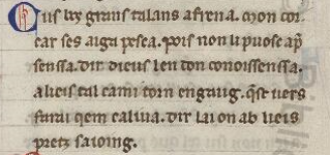 Cui lex grans talans afrena. mon cor
car ses aigu pesca. pois non li puosc ap̃
senssa. dir dieus len don conoissenssa.
alieis tal cami torn en gaug. qest uers
farai qem caliua. dir lai on ab lieis
pretz saioing.